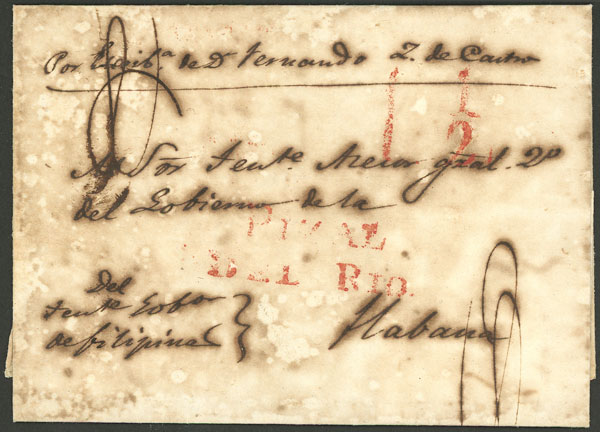 Por Escriba. de Dn. Fernando Z. de Castro
1 1/2
Al Sor Tente. Asesor gral. 2º
del Gobierno de la
PINAL
DEL RIO.
Del
Tente Gobor
de filipinas
Habana